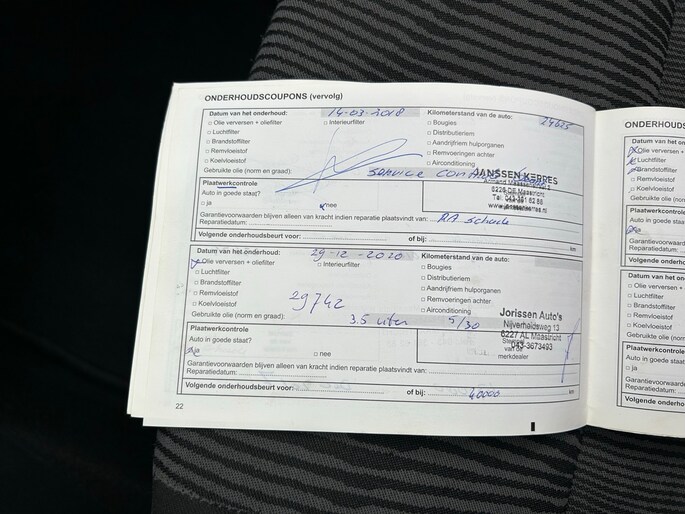 ONDERHOUDSCOUPONS (vervolg)
Datum van het onderhoud: 14-03-2018 Kilometerstand van de auto: 24625
Olie verversen + oliefilter Interieurfilter Bougies
Luchtfilter Distributieriem
Brandstoffilter Aandrijfriem hulporganen
Remvloeistof Remvoeringen achter
Koelvloeistof Airconditioning
Gebruikte olie (norm en graad): service
JANSSEN KERRES
6229 DE Maastricht
Plaatwerkcontrole
Auto in goede staat?
ja nee
Garantievoorwaarden blijven alleen van kracht indien reparatie plaatsvindt van: RA schade
Reparatiedatum:
Volgende onderhoudsbeurt voor: of bij: km
Datum van het onderhoud: 29-12-2020 Kilometerstand van de auto:
Olie verversen + oliefilter Interieurfilter Bougies
Luchtfilter Distributieriem
Brandstoffilter Aandrijfriem hulporganen
Remvloeistof Remvoeringen achter
Koelvloeistof 29742 Airconditioning
Gebruikte olie (norm en graad): 3.5 liter 5/30
Jorissen Auto's
Nijverheidsweg 13
6227 AL Maastricht
043-3673493
merkdealer
Plaatwerkcontrole
Auto in goede staat?
ja nee
Garantievoorwaarden blijven alleen van kracht indien reparatie plaatsvindt van:
Reparatiedatum:
Volgende onderhoudsbeurt voor: of bij: 40000 km
22
ONDERHOUDS
Datum van het on
Olie verversen +
Luchtfilter
Brandstoffilter
Remvloeistof
Koelvloeistof
Gebruikte olie (norm
Plaatwerkcontrole
Auto in goede staat
ja
Garantievoorwaarden
Reparatiedatum:
Volgende onderhou
Datum van het on
Olie verversen +
Luchtfilter
Brandstoffilter
Remvloeistof
Koelvloeistof
Gebruikte olie (norm
Plaatwerkcontrole
Auto in goede staat
ja
Garantievoorwaarden
Reparatiedatum:
Volgende onderhou